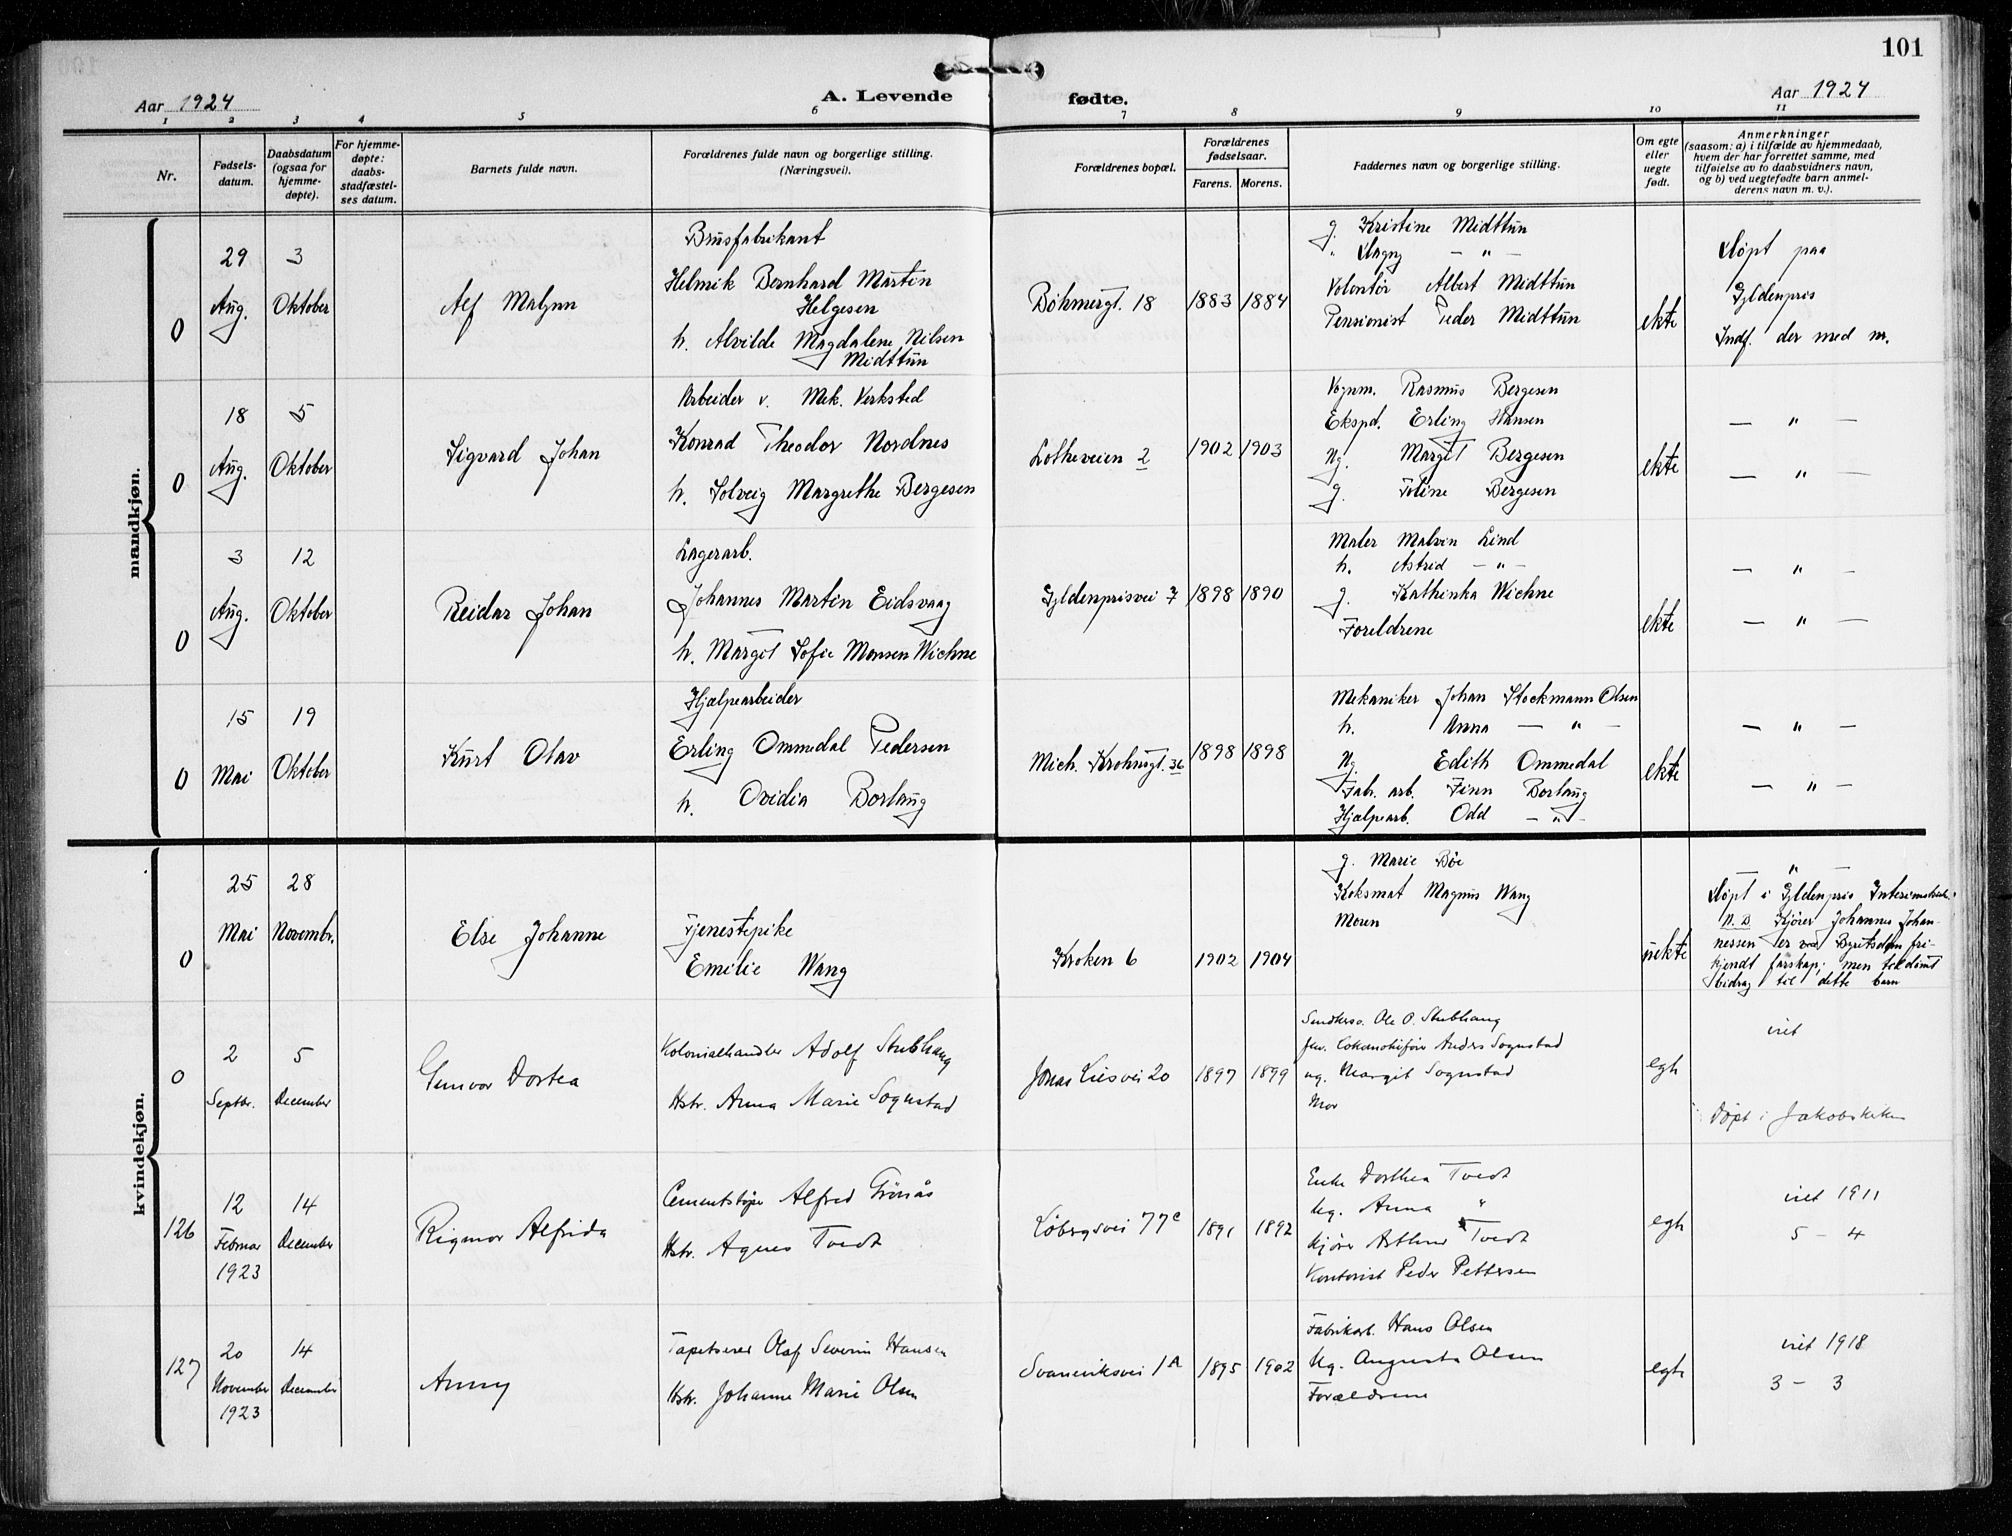 101
Aar 1924
A. Levende fødte.
Aar 1924
1 2 3 4 5 6 7 8 9 10 11
Nr.
Fødsels-
datum.
Daabsdatum
(ogsaa for
hjemme-
døpte).
For hjemme-
døpte:
daabs-
stadfæstel-
ses datum.
Barnets fulde navn.
Forældrenes fulde navn og borgerlige stilling.
(Næringsvei).
Forældrenes bopæl.
Forældrenes
fødselsaar.
Farens. Morens.
Faddernes navn og borgerlige stilling.
Om egte
eller
uegte
født.
Anmerkninger
(saasom: a) i tilfælde av hjemmedaab,
hvem der har forrettet samme, med
tilføielse av to daabsvidners navn,
og b) ved uegtefødte barn anmel-
derens navn m. v.).
mandkjøn.
0
29
Aug.
3
Oktober
Alf Malynn
Brusfabrikant
Helmik Bernhard Martin
Helgesen
h. Alvilde Magdalene Nilsen
Midttun
Bøhmergt. 18
1883 1884
g. Kristine Midttun
" Magny — " —
Volontør Albert Midttun
Pensionist Peder Midttun
ekte
Døpt paa
Gyldenpris
Indf. der med nr.
0
18
Aug.
5
Oktober
Sigvard Johan
Arbeider v. Mek. Verksted
Konrad Theodor Nordnes
h. Solveig Margrethe Bergesen
Lotheveien 2
1902 1903
Vognm. Rasmus Bergesen
Ekspd. Erling Hansen
Ug. Margit Bergesen
g. Toline Bergesen
ekte
— " —
— " —
0
3
Aug.
12
Oktober
Reidar Johan
Lagerarb.
Johannes Martin Eidsvaag
h. Margit Sofie Monsen Wichne
Gyldenprisvei 7
1898 1890
Maler Malvin Lind
h. Astrid — " —
g. Kathinka Wichne
Foreldrene
ekte
— " —
— " —
0
15
Mai
19
Oktober
Kurt Olav
Hjælpearbeider
Erling Ommedal Pedersen
h. Ovidia Borlaug
Mich. Krohnsgt. 36
1898 1898
Mekaniker Johan Stockmann Olsen
h. Anna — " —
Ug. Edith Ommedal
Fab. arb. Finn Borlaug
Hjælpearb. Odd — " —
ekte
— " —
— " —
kvindekjøn.
0
25
Mai
28
Novembr.
Else Johanne
Tjenestepike
Emilie Wang
Kroken 6
1902 1904
g. Marie Bøe
Koksmat Magnus Wang
Moren
uekte
— " —
Døpt i Gyldenpris
N.B Kjører Johannes Johan-
nessen er ved Byretsdom fri-
kjendt farskap; men tildømt
bidrag til dette barn
0
2
Septbr.
5
December
Gunvor Dortea
Kolonialhandler Adolf Stubhaug
Hstr. Anna Marie Sognstad
Jonas Liesvei 20
1897 1899
Ole O. Stubhaug
Anders Sognstad
ug. Margit Sognstad
Mor
egte
viet
Døpt i Jakobskirken
126
12
Februar
1923
14
December
Rigmor Alfrida
Cementstøper Alfred Grønås
Hstr. Agnes Tvedt
Løbergsvei 77c
1891 1892
Enke Dorthea Tvedt
Ug. Anna "
Kjører Arthur Tvedt
Kontorist Peder Pettersen
egte
viet 1911
5 – 4
127
20
November
1923
14
December
Anny
Tapetserer Olaf Severin Hansen
Hstr. Johanne Marie Olsen
Svaneviksvei 1A
1895 1902
Fabrikarb. Hans Olsen
Ug. Augusta Olsen
Forældrene
egte
viet 1918
3 – 3